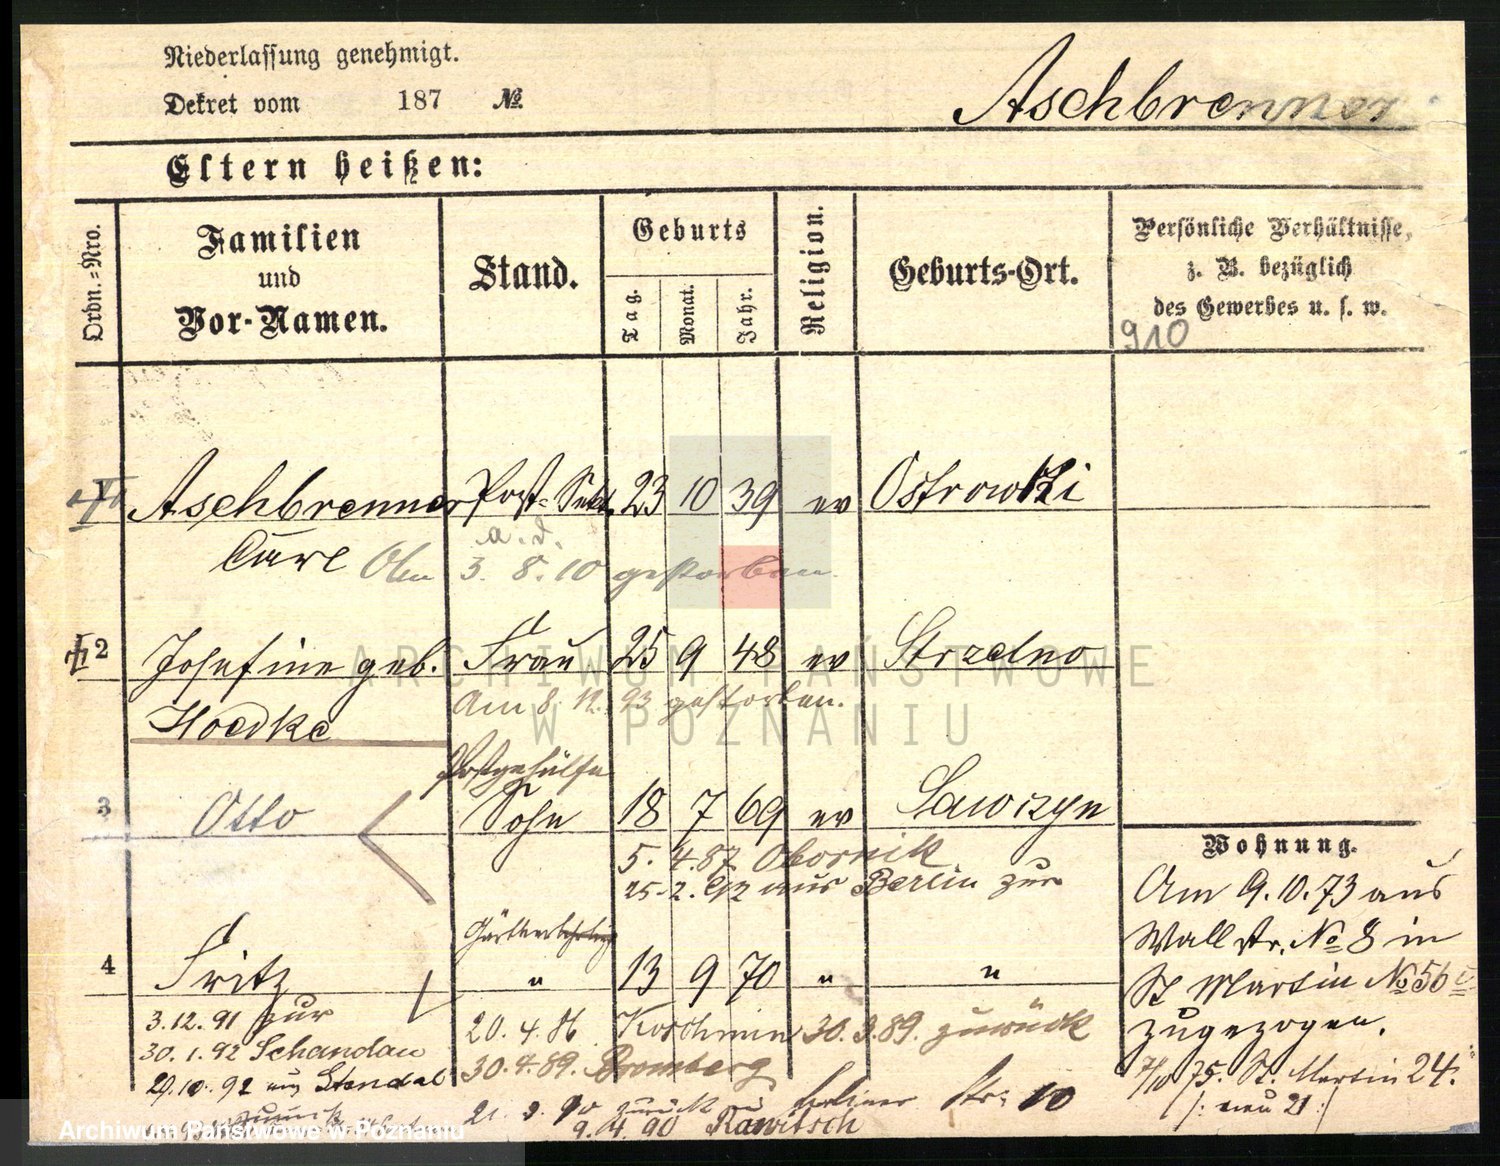 Niederlassung genehmigt.
Dekret vom 187 №
Aschbrenner
Eltern heißen:
Ordn.=Nro.
Familien
und
Vor-Namen.
Stand.
Geburts
Tag.
Monat.
Jahr.
Religion.
Geburts-Ort.
Persönliche Verhältnisse,
z. B. bezüglich
des Gewerbes u. s. w.
910
1 Aschbrenner Post-Sekt. 23 10 39 ev Ostrowki
a. d.
Carl 3. 8. 10 gestorben
2 Josefine geb. Frau 25 9 48 ev Strzelno
Hoedke
Am 8. 12. 93 gestorben.
Postgehülfe
3 Otto Sohn 18 7 69 ev
5. 4. 87 Obornik
25. 2. 92 aus Berlin zur
Wohnung.
Am 9. 10. 73 aus
Wallstr. No 8 in
St Martin No 56
zugezogen.
75. St. Martin 24.
/: neu 21 :/
Gärtnerlehrling
4 Fritz " 13 9 70 " "
3. 12. 91 zur
30. 1. 92 Schandau
29. 10. 92 aus Stendal
zurück
20. 4. 86 Koschmin 30. 3. 89. zurück
30. 4. 89. Bromberg
21. 3. 90 zurück Berliner Str. 10
9. 4. 90 Rawitsch
ARCHIWUM PAŃSTWOWE
W POZNANIU
Archiwum Państwowe w Poznaniu